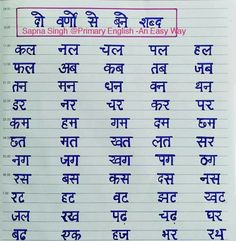 दो वर्णों से बने शब्द
Sapna Singh @Primary English -An Easy Way
कल नल चल पल हल
फल अब कब तब जब
तन मन धन वन थन
डर नर चर कर पर
कम हम गम दम छम
छत मत खत लत सर
नग जग खग पग ठग
रस बस कस दस नस
रट हट वट झट खट
जल रख पढ़ चढ़ घर
बढ़ एक हज भर रथ